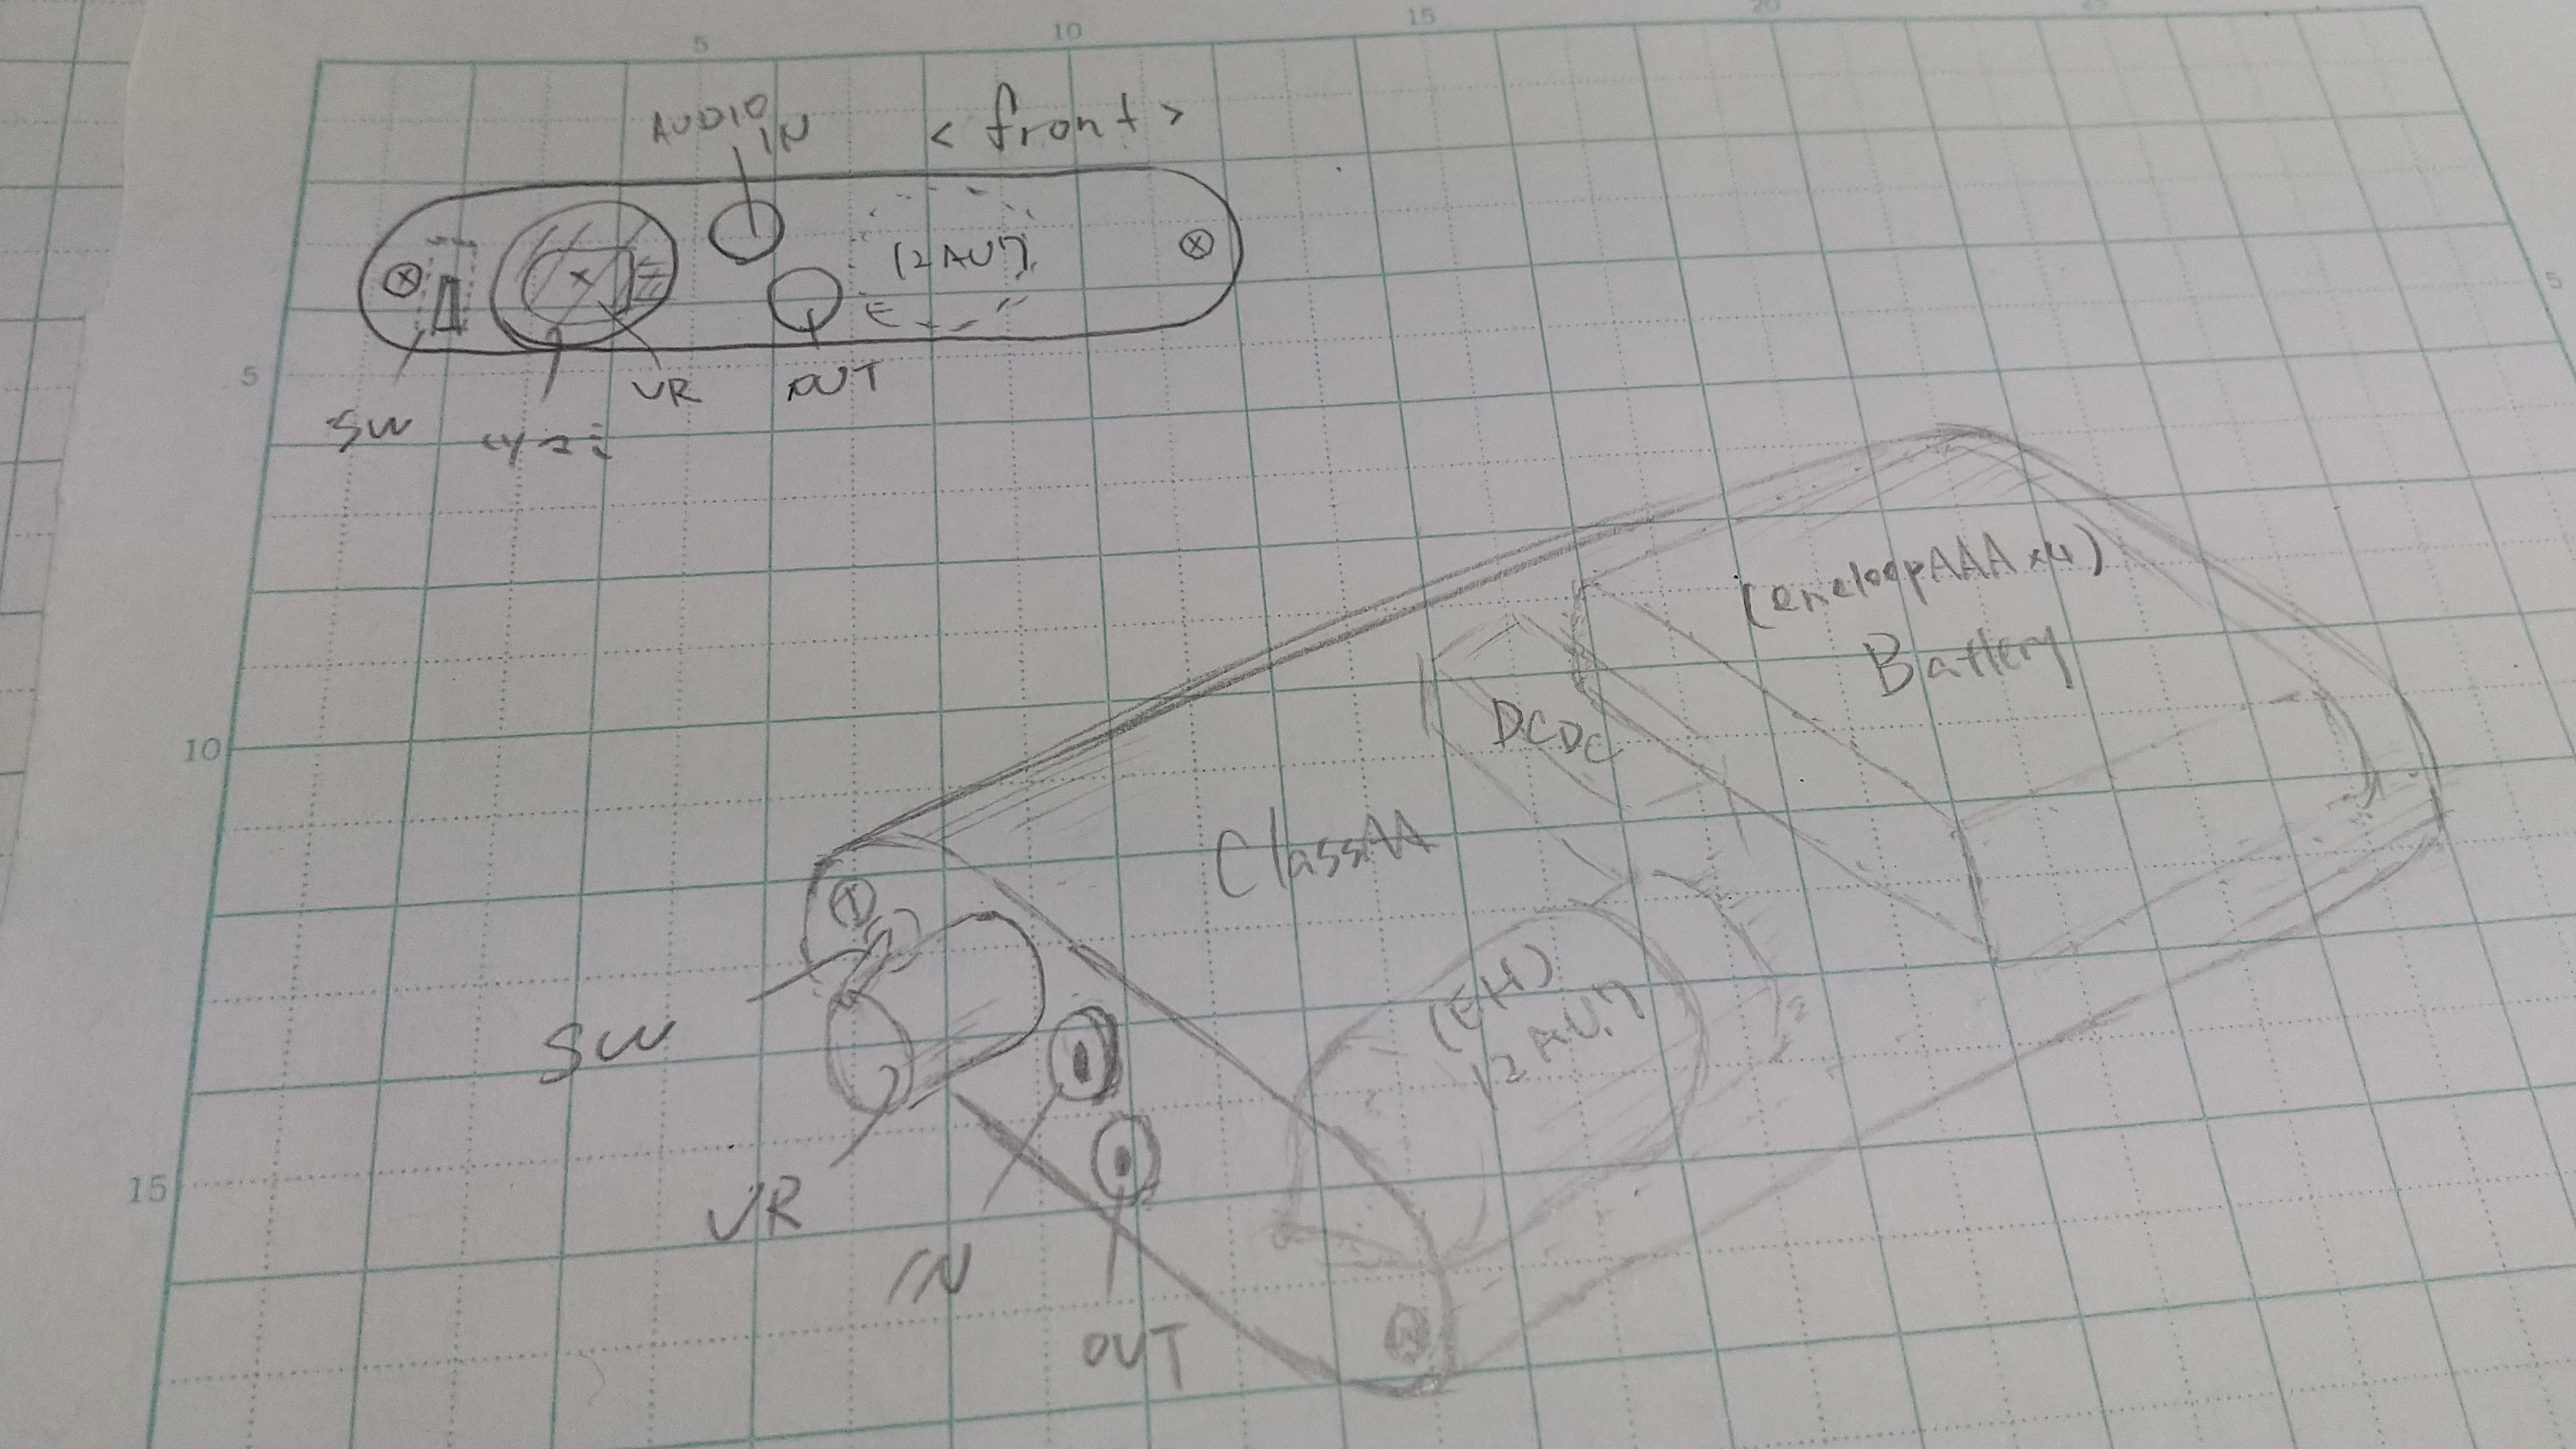 5
10
15
20
25
AUDIO
IN
< front >
12AU7
SW
VR
OUT
5
5
10
15
(eneloopAAA×4)
Battery
DCDC
ClassAA
(EH)
12AU7
SW
VR
IN
OUT